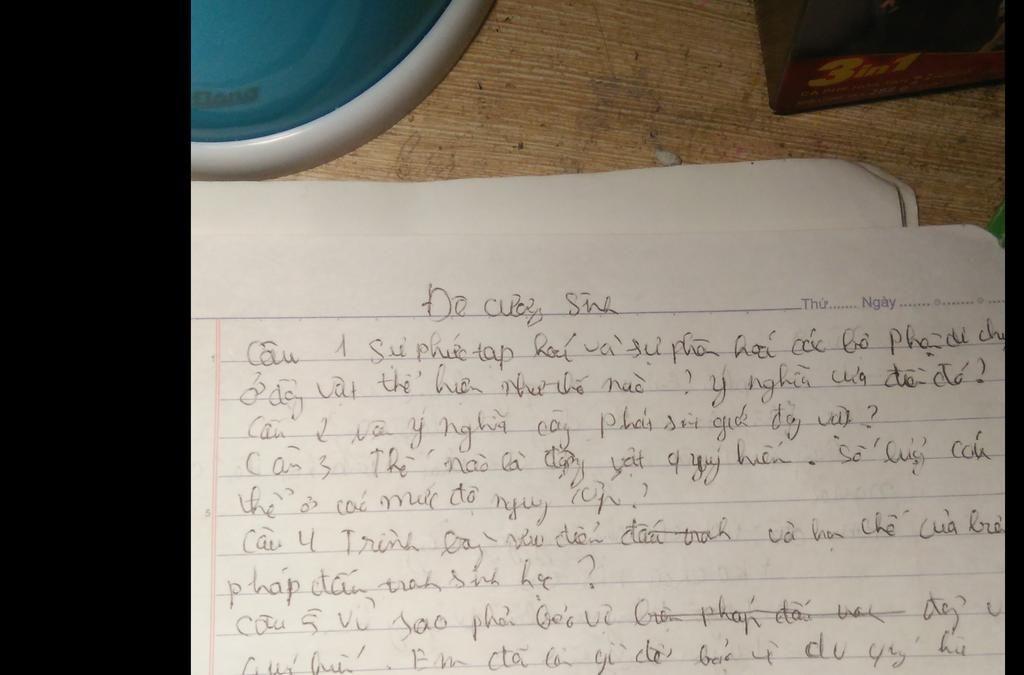 3in1
Thứ....... Ngày
Đề cương sinh
Câu 1 Sự phức tạp hoá và sự phân hoá các bộ phận di ch
ở động vật thể hiện như thế nào ? Ý nghĩa của điều đó?
Câu 2 ý nghĩa cây phát sinh giới động vật?
Câu 3 Thế nào là động vật quý hiếm. Số lượng cá
thể ở các mức độ nguy cấp?
Câu 4 Trình bày ưu điểm đấu tranh và hạn chế của
pháp đấu tranh sinh học ?
Câu 5 Vì sao phải bảo vệ biện pháp đấu tranh động v
quý hiếm. Em đã làm gì để bảo vệ